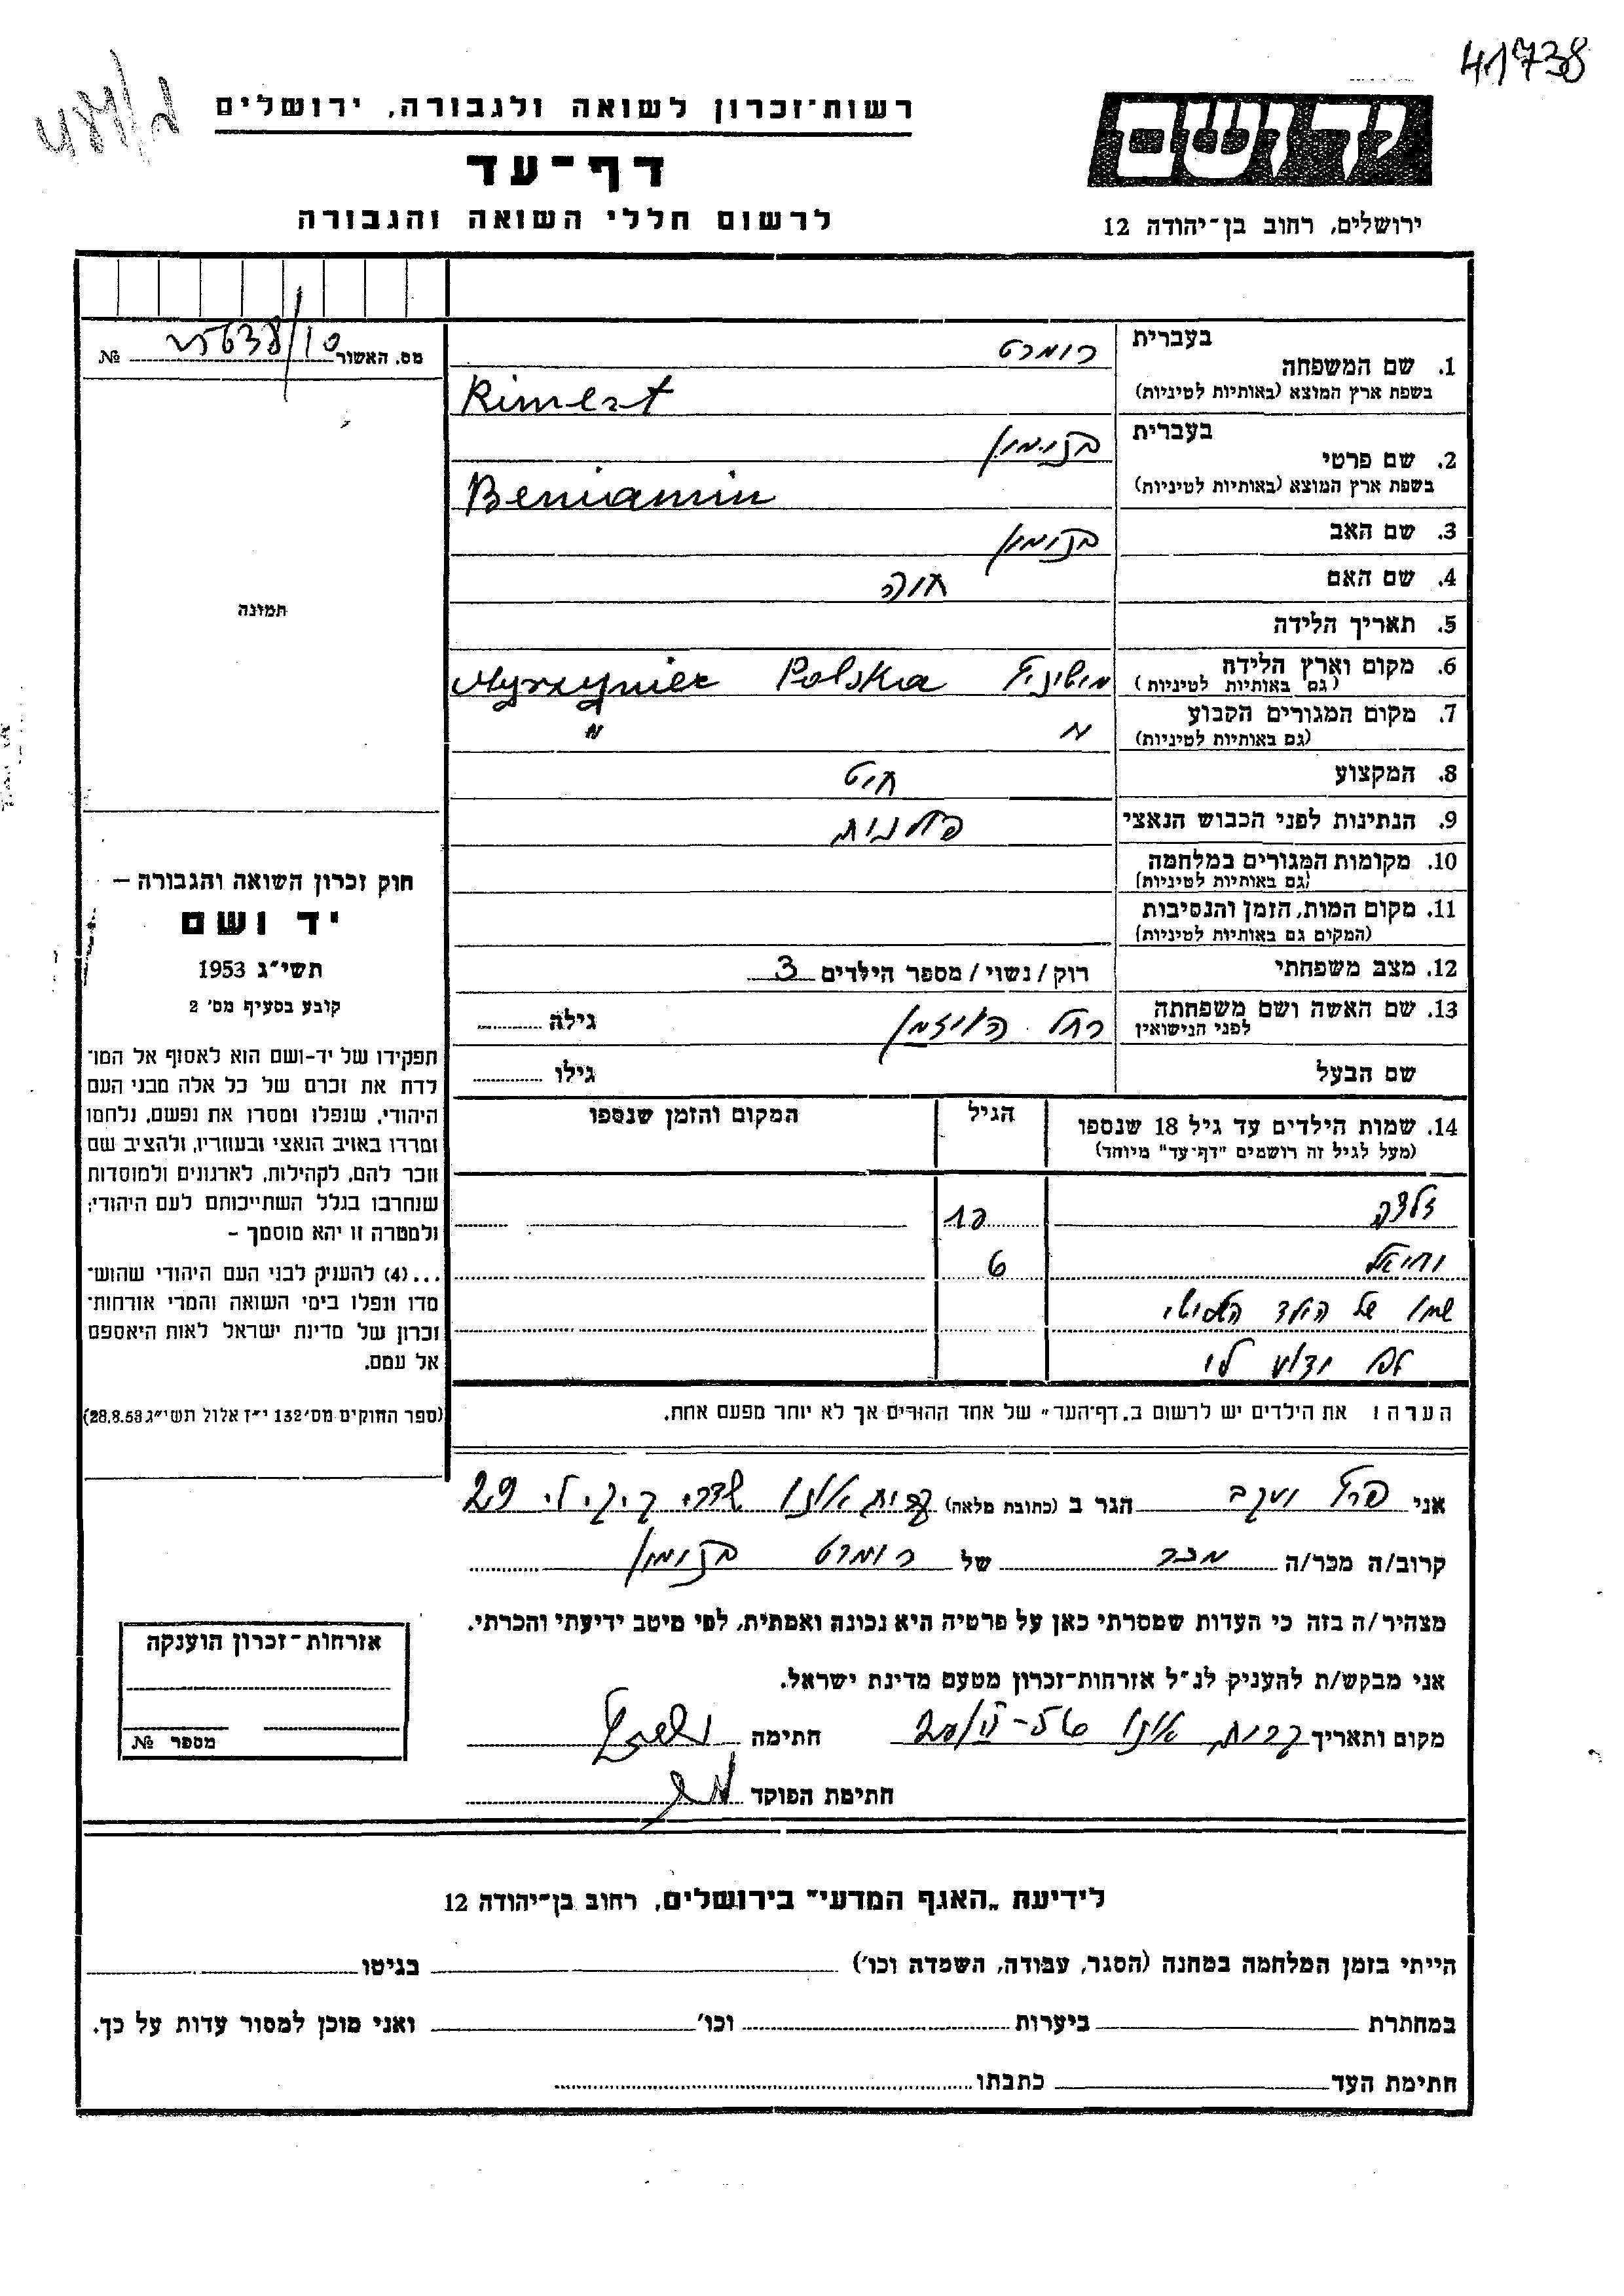 41738
רשות-זכרון לשואה ולגבורה, ירושלים
דף-עד
לרשום חללי השואה והגבורה
יד ושם
ירושלים, רחוב בן-יהודה 12
מס. האשור №
1. שם המשפחה
בעברית
רימרט
בשפת ארץ המוצא (באותיות לטיניות)
Rimert
2. שם פרטי
בעברית
בנימין
בשפת ארץ המוצא (באותיות לטיניות)
Beniamin
3. שם האב
בנימין
4. שם האם
חוה
5. תאריך הלידה
6. מקום וארץ הלידה
(גם באותיות לטיניות)
Polska Myszyniec
7. מקום המגורים הקבוע
(גם באותיות לטיניות)
" "
8. המקצוע
חיט
9. הנתינות לפני הכבוש הנאצי
פולנית
10. מקומות המגורים במלחמה
(גם באותיות לטיניות)
11. מקום המות, הזמן והנסיבות
(המקום גם באותיות לטיניות)
12. מצב משפחתי
רוק / נשוי / מספר הילדים 3
13. שם האשה ושם משפחתה
לפני הנישואין
רחל
גילה
שם הבעל
גילו
14. שמות הילדים עד גיל 18 שנספו
(מעל לגיל זה רושמים "דף-עד" מיוחד)
הגיל
המקום והזמן שנספו
זלדה
10
יחיאל
6
שמו של הילד השלישי
לא ידוע לי
הערה: את הילדים יש לרשום ב„דף-העד" של אחד ההורים אך לא יותר מפעם אחת.
תמונה
חוק זכרון השואה והגבורה –
יד ושם
תשי"ג 1953
קובע בסעיף מס' 2
תפקידו של יד-ושם הוא לאסוף אל המו־
לדת את זכרם של כל אלה מבני העם
היהודי, שנפלו ומסרו את נפשם, נלחמו
ומרדו באויב הנאצי ובעוזריו, ולהציב שם
וזכר להם, לקהילות, לארגונים ולמוסדות
שנחרבו בגלל השתייכותם לעם היהודי;
ולמטרה זו יהא מוסמך –
...(4) להעניק לבני העם היהודי שהוש־
מדו ונפלו בימי השואה והמרי אזרחות־
זכרון של מדינת ישראל לאות היאספם
אל עמם.
(ספר החוקים מס' 132 י"ז אלול תשי"ג 28.8.53)
אני פרל יעקב הגר ב (כתובת מלאה) קרית אונו 29
קרוב/ה מכר/ה מכר של רימרט בנימין
מצהיר/ה בזה כי העדות שמסרתי כאן על פרטיה היא נכונה ואמתית, לפי מיטב ידיעתי והכרתי.
אני מבקש/ת להעניק לנ"ל אזרחות-זכרון מטעם מדינת ישראל.
מקום ותאריך קרית אונו חתימה
חתימת הפוקד
אזרחות-זכרון הוענקה
מספר №
לידיעת „האגף המדעי" בירושלים, רחוב בן-יהודה 12
הייתי בזמן המלחמה במחנה (הסגר, עבודה, השמדה וכו') בגיטו
במחתרת ביערות וכו' ואני מוכן למסור עדות על כך.
חתימת העד כתבתו